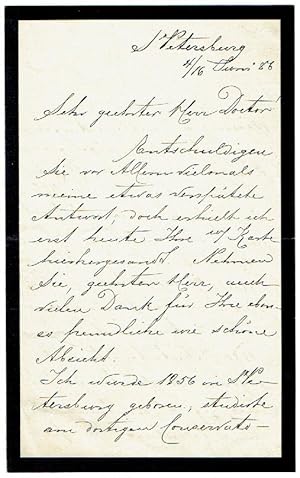 St Petersburg
4/16 Juni 86
Sehr geehrter Herr Doctor!
Entschuldigen
Sie vor Allem vielmals
meine etwas verspätete
Antwort, doch erhielt ich
erst heute Ihre w/ Karte
hierhergesandt. Nehmen
Sie, geehrter Herr, auch
vielen Dank für Ihre eben-
so freundliche wie schöne
Absicht.
Ich wurde 1856 in St Pe-
tersburg geboren, studierte
am dortigen Conservato-